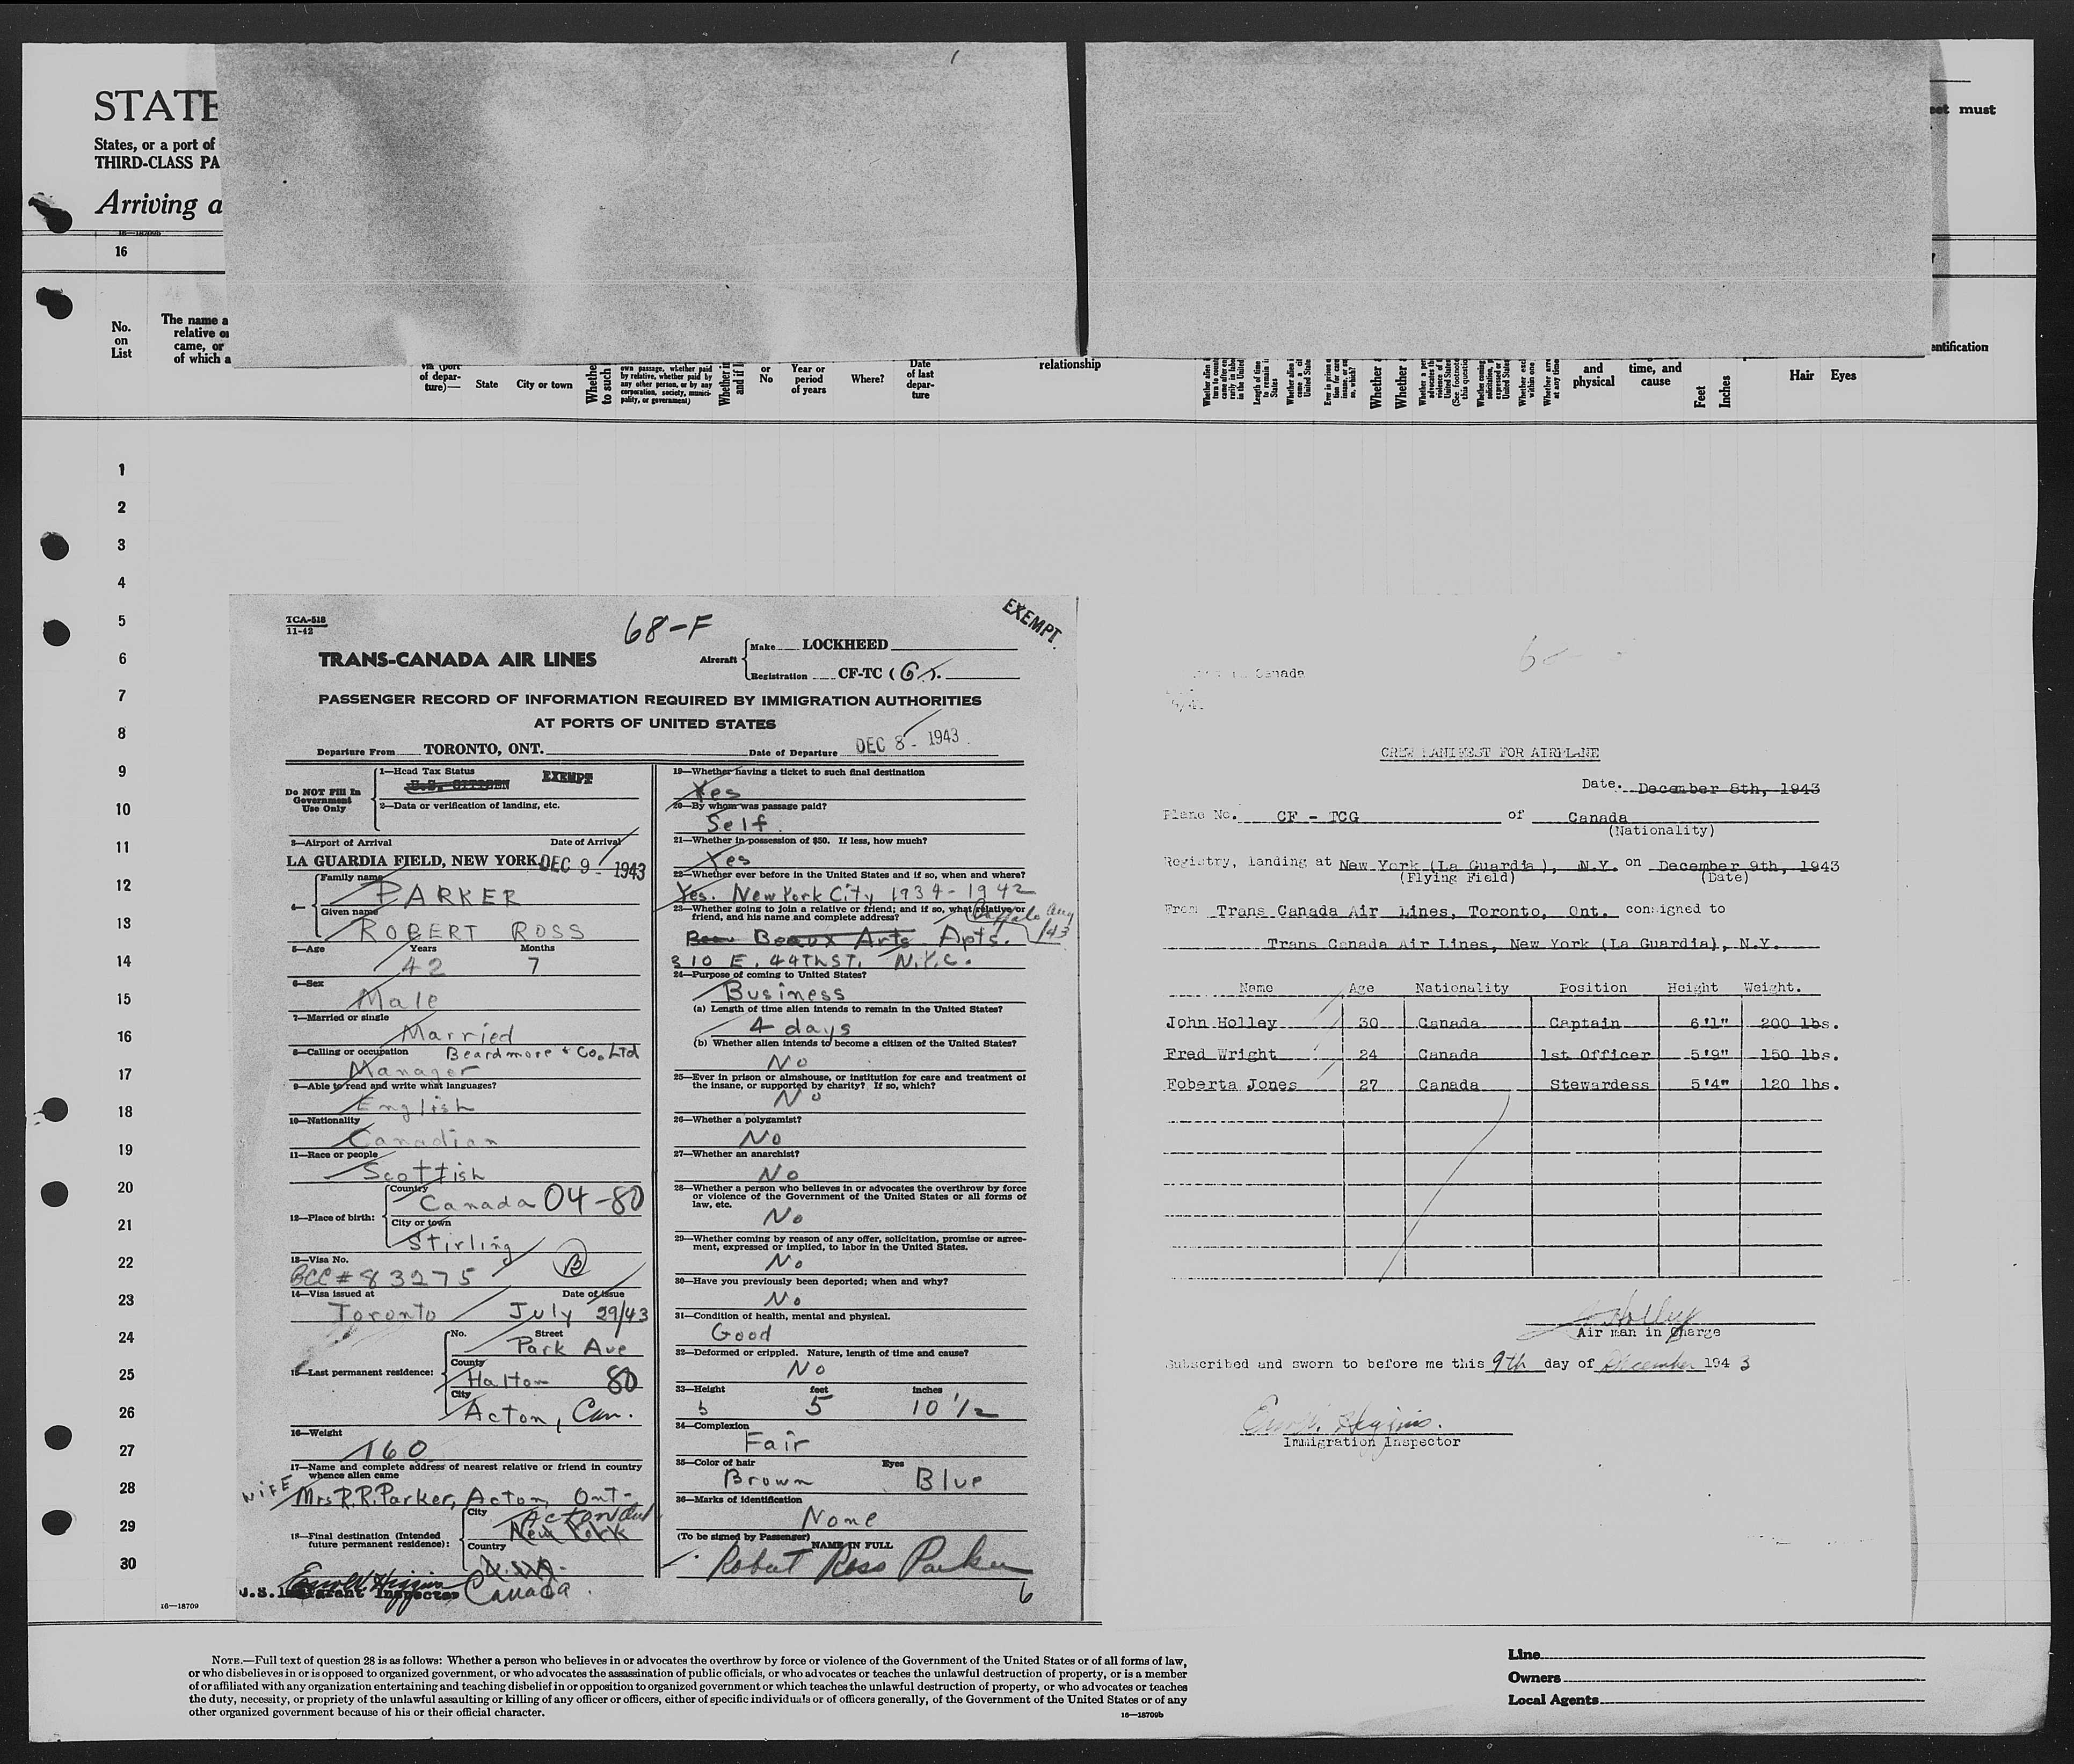 STATE
States, or a port of
THIRD-CLASS PA
Arriving a
must
16
No.
on
List
The name a
relative or
came, or
of which a
entification
via (port
of depar-
ture)—
State
City or town
Whether
to such
own passage, whether paid
by relative, whether paid by
any other person, or by any
corporation, society, munici-
pality, or government)
Whether in
and if
or
No
Year or
period
of years
Where?
Date
of last
depar-
ture
relationship
Whether
Whether
and
physical
time, and
cause
Feet
Inches
Hair
Eyes
1
2
3
4
5
6
7
8
9
10
11
12
13
14
15
16
17
18
19
20
21
22
23
24
25
26
27
28
29
30
16—18709
TCA-518
11-42
68-F
EXEMPT
TRANS-CANADA AIR LINES
Aircraft
Make LOCKHEED
Registration CF-TC (G).
PASSENGER RECORD OF INFORMATION REQUIRED BY IMMIGRATION AUTHORITIES
AT PORTS OF UNITED STATES
Departure From TORONTO, ONT. Date of Departure DEC 8 - 1943
Do NOT Fill In
Government
Use Only
1—Head Tax Status
U.S. CITIZEN EXEMPT
2—Data or verification of landing, etc.
3—Airport of Arrival Date of Arrival
LA GUARDIA FIELD, NEW YORK DEC 9 - 1943
4—
Family name
PARKER
Given name
ROBERT ROSS
5—Age Years Months
42 7
6—Sex
Male
7—Married or single
Married
8—Calling or occupation Beardmore & Co. Ltd
Manager
9—Able to read and write what languages?
English
10—Nationality
Canadian
11—Race or people
Scottish
12—Place of birth:
Country
Canada 04-80
City or town
Stirling
13—Visa No.
BCC # 83275 B
14—Visa issued at Date of issue
Toronto July 29/43
15—Last permanent residence:
No. Street
Park Ave
County
Halton 80
City
Acton, Can.
16—Weight
160
17—Name and complete address of nearest relative or friend in country
whence alien came
WIFE
Mrs R.R. Parker, Acton Ont-
18—Final destination (Intended
future permanent residence):
City
Acton Ont
New York
Country
U.S.A.
Canada
U.S. Immigrant Inspector
19—Whether having a ticket to such final destination
Yes
20—By whom was passage paid?
Self
21—Whether in possession of $50. If less, how much?
Yes
22—Whether ever before in the United States and if so, when and where?
Yes. New York City 1934-1942
23—Whether going to join a relative or friend; and if so, what relative or
friend, and his name and complete address?
Buffalo Aug
/43
Beaux Arts Apts.
310 E. 44TH ST. N.Y.C.
24—Purpose of coming to United States?
Business
(a) Length of time alien intends to remain in the United States?
4 days
(b) Whether alien intends to become a citizen of the United States?
No
25—Ever in prison or almshouse, or institution for care and treatment of
the insane, or supported by charity? If so, which?
No
26—Whether a polygamist?
No
27—Whether an anarchist?
No
28—Whether a person who believes in or advocates the overthrow by force
or violence of the Government of the United States or all forms of
law, etc.
No
29—Whether coming by reason of any offer, solicitation, promise or agree-
ment, expressed or implied, to labor in the United States.
No
30—Have you previously been deported; when and why?
No
31—Condition of health, mental and physical.
Good
32—Deformed or crippled. Nature, length of time and cause?
No
33—Height feet inches
5 5 10 1/2
34—Complexion
Fair
35—Color of hair Eyes
Brown Blue
36—Marks of identification
None
(To be signed by Passenger)
NAME IN FULL
Robert Ross Parker
6
Canada
CREW MANIFEST FOR AIRPLANE
Date. December 8th, 1943
Plane No. CF - TCG of Canada
(Nationality)
Registry, landing at New York (La Guardia), N.Y. on December 9th, 1943
(Flying Field) (Date)
From Trans Canada Air Lines, Toronto, Ont. consigned to
Trans Canada Air Lines, New York (La Guardia), N.Y.
Name Age Nationality Position Height Weight.
John Holley 30 Canada Captain 6'1" 200 lbs.
Fred Wright 24 Canada 1st Officer 5'9" 150 lbs.
Roberta Jones 27 Canada Stewardess 5'4" 120 lbs.
J Holley
Air man in Charge
Subscribed and sworn to before me this 9th day of December 1943
Immigration Inspector
NOTE.—Full text of question 28 is as follows: Whether a person who believes in or advocates the overthrow by force or violence of the Government of the United States or of all forms of law,
or who disbelieves in or is opposed to organized government, or who advocates the assassination of public officials, or who advocates or teaches the unlawful destruction of property, or is a member
of or affiliated with any organization entertaining and teaching disbelief in or opposition to organized government or which teaches the unlawful destruction of property, or who advocates or teaches
the duty, necessity, or propriety of the unlawful assaulting or killing of any officer or officers, either of specific individuals or of officers generally, of the Government of the United States or of any
other organized government because of his or their official character.
16—18709b
Line
Owners
Local Agents